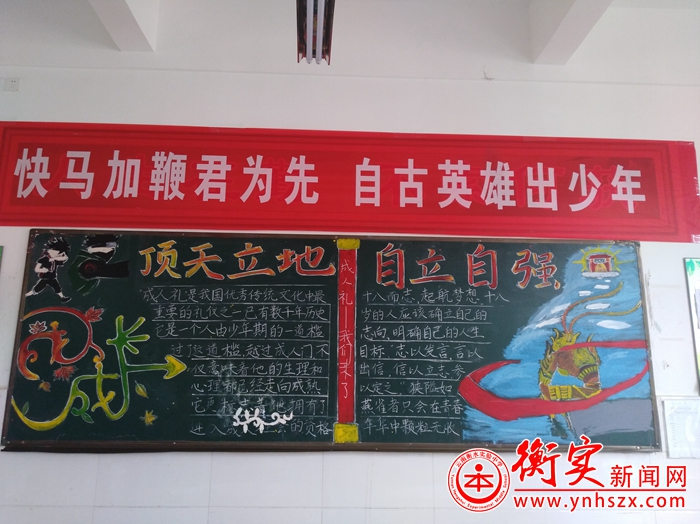 快马加鞭君为先 自古英雄出少年
顶天立地
成人礼是我国优秀传统文化中最
重要的礼仪之一已有数千年历史
它是一个人由少年期的一道槛
过了这道槛,越过成人门不
仅意味着他的生理和
心理都已经走向成熟
它更标志着他拥有了
进入成人的资格
成人礼——我们来了
自立自强
十八而志,起航梦想,十八
岁的人应该确立自己的
志向,明确自己的人生
目标"志以发言,言以
出信,信以立志,参
以定之"狭隘如
莫雀者只会在青春
年华中颗粒无收
云南衡水实验中学
衡实新闻网
www.ynhszx.com